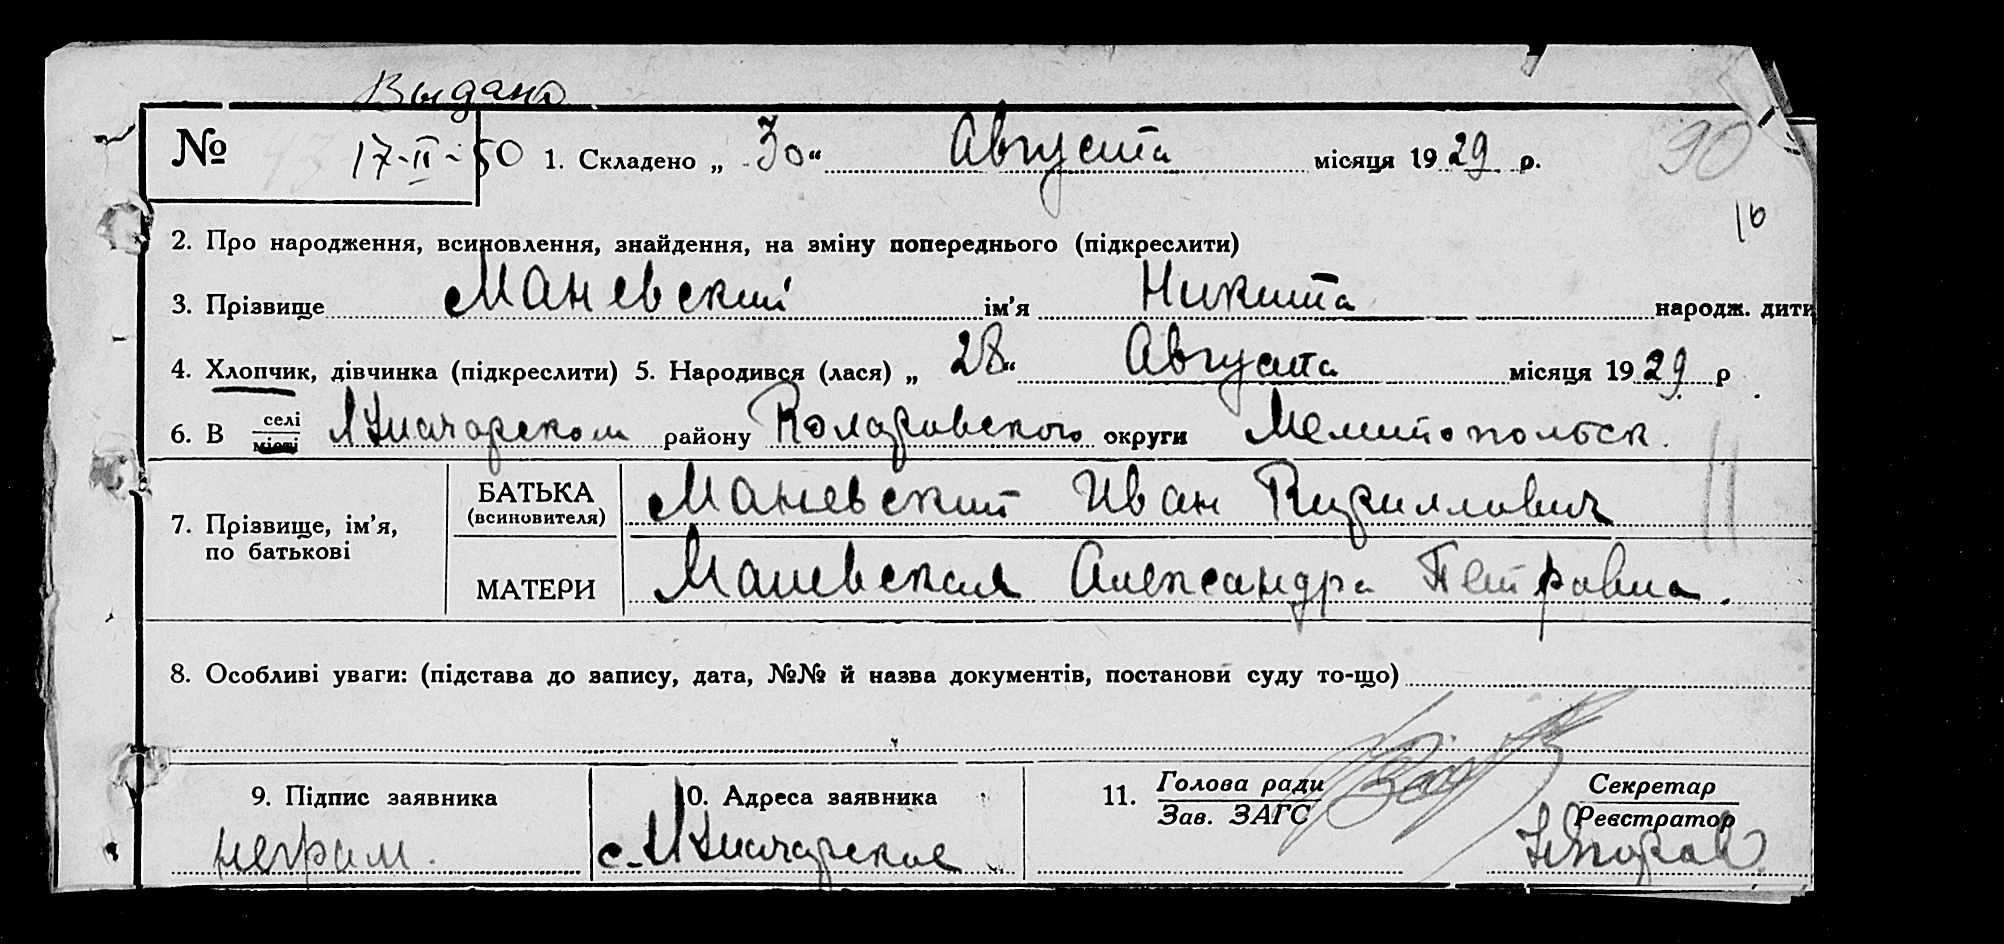 Выдано
№ 17-II-50 1. Складено „30“ Августа місяця 1929 р. 90
16
2. Про народження, всиновлення, знайдення, на зміну попереднього (підкреслити)
3. Прізвище Маневский ім’я Никита народж. дити
4. Хлопчик, дівчинка (підкреслити) 5. Народився (лася) „28“ Августа місяця 1929 р
6. В селі місті Луначарском району Коларовского округи Мелитопольск.
7. Прізвище, ім’я, по батькові
БАТЬКА (всиновителя) Маневский Иван Кириллович
МАТЕРИ Маневская Александра Петровна.
8. Особливі уваги: (підстава до запису, дата, №№ й назва документів, постанови суду то-що)
9. Підпис заявника 10. Адреса заявника 11. Голова ради Секретар
Зав. ЗАГС Реєстратор
неграм. с. Луначарское